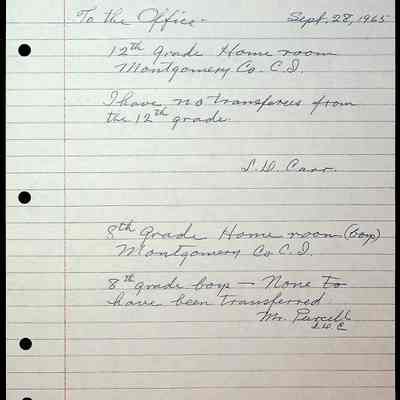 To the Office. Sept. 28, 1965
12th Grade Home room
Montgomery Co. C.I.
I have no transferees from
the 12th grade.
L.W. Carr.
8th Grade Home room (boys)
Montgomery Co C.I.
8th grade boys — None to
have been transferred
Mr. Purcell